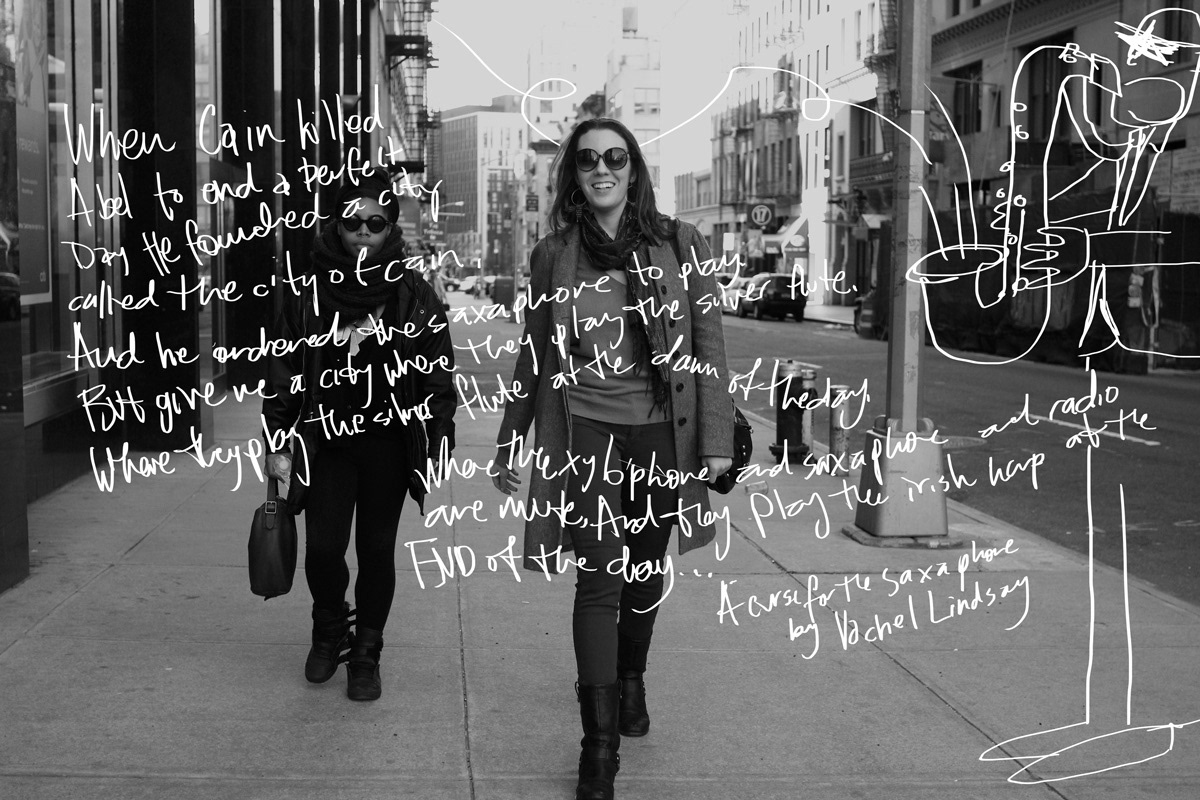 When Cain killed
Abel to end a perfect
Day He founded a city
called the city of cain.
And he ordered the saxaphone to play
But give me a city where they play the silver flute.
Where they play the silver flute at the dawn of the day.
Where the xylophone and saxaphone and radio
are mute. And they play the irish harp at the
END of the day...
A curse for the saxaphone
by Vachel Lindsay
17